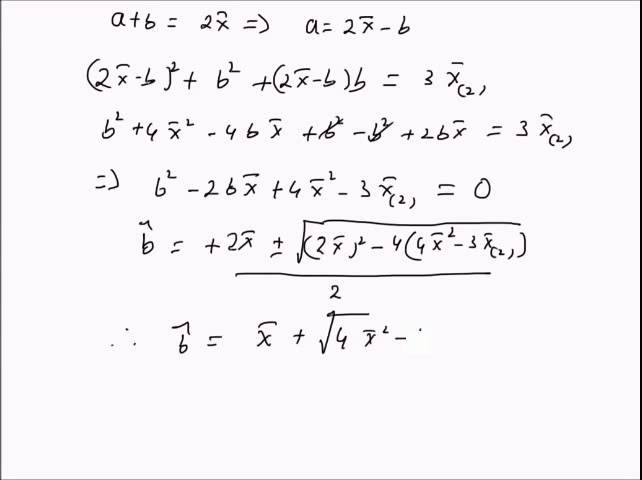 a+b = 2x̄ => a= 2x̄ - b
(2x̄-b)² + b² +(2x̄-b)b = 3 x̄(2)
b² +4x̄² - 4bx̄ +b² -b² +2bx̄ = 3 x̄(2)
=> b² -2bx̄ +4x̄² - 3x̄(2) = 0
b̂ = +2x̄ ± √((2x̄)² - 4(4x̄² -3x̄(2)))
2
∴ b̂ = x̄ + √4 x̄² -